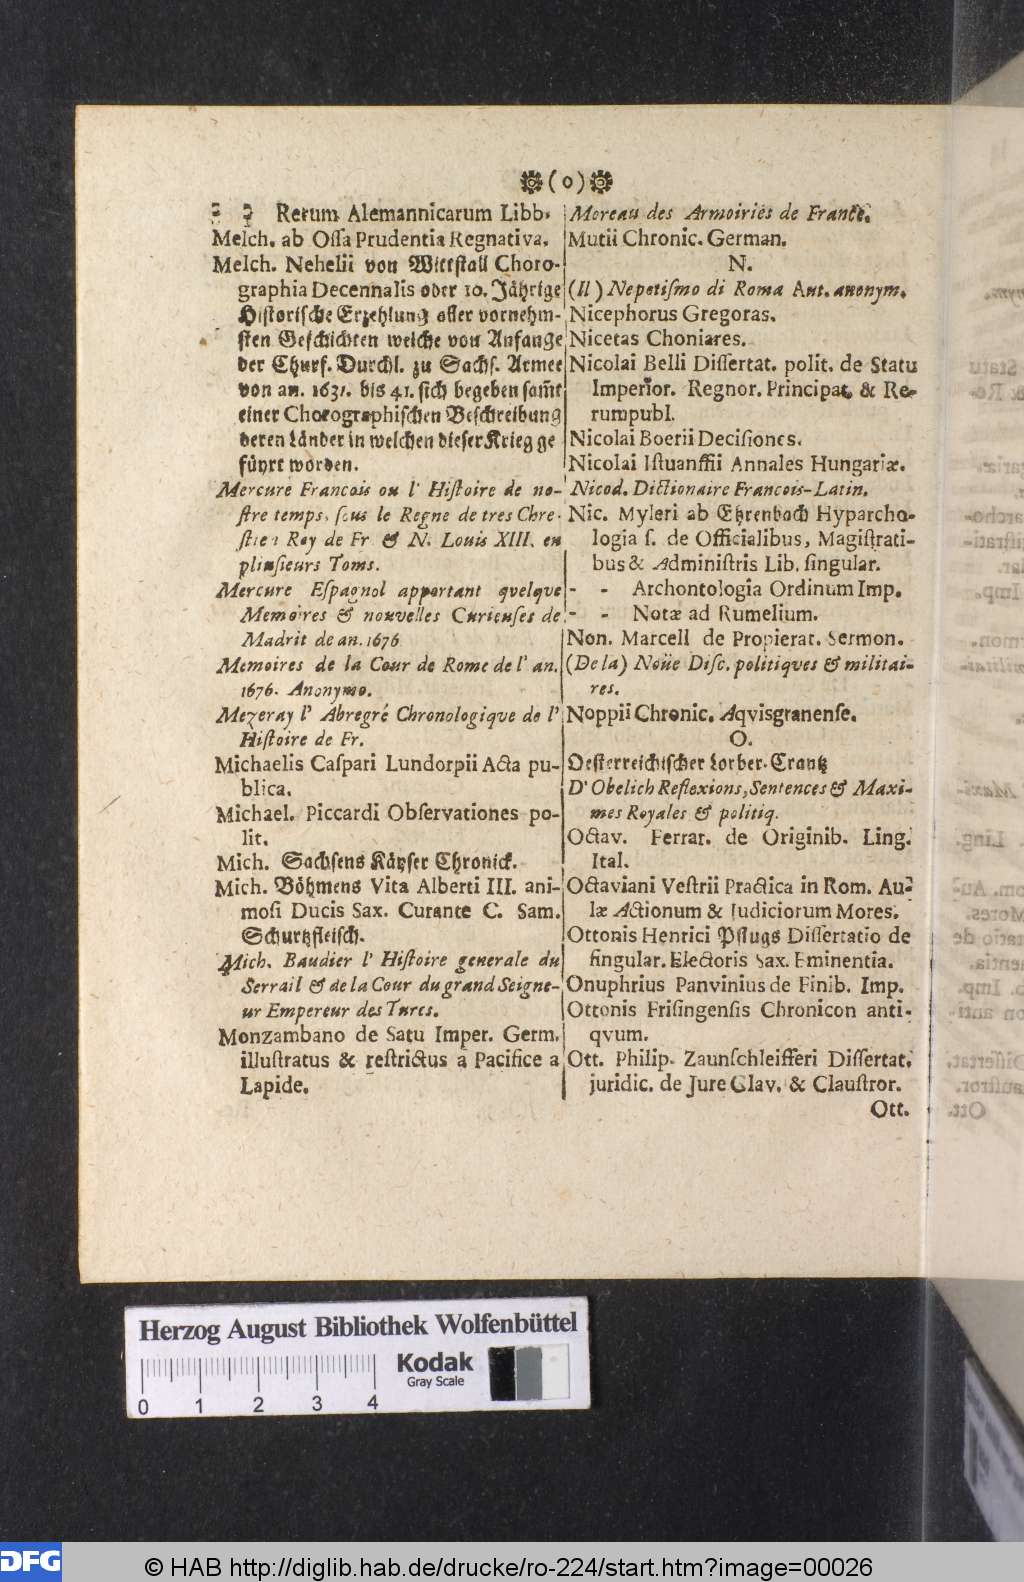 (o)
Rerum Alemannicarum Libb.
Melch. ab Ossa Prudentia Regnativa.
Melch. Nehelii von Wittstall Choro-
graphia Decennalis oder 10. Jährige
Historische Erzehlung aller vornehm-
sten Geschichten welche von Anfange
der Churf. Durchl. zu Sachs. Armee
von an. 1631. bis 41. sich begeben samt
einer Chorographischen Beschreibung
deren Länder in welchen dieser Krieg ge
führt worden.
Mercure Francois ou l' Histoire de no-
stre temps, sous le Regne de tres Chre-
stien Roy de Fr. & N. Louis XIII. en
plusieurs Toms.
Mercure Espagnol apportant qvelqve
Memoires & nouvelles Curieuses de
Madrit de an. 1676
Memoires de la Cour de Rome de l' an.
1676. Anonymo.
Mezeray l' Abregré Chronologiqve de l'
Histoire de Fr.
Michaelis Caspari Lundorpii Acta pu-
blica.
Michael. Piccardi Observationes po-
lit.
Mich. Sachsens Käyser Chronick.
Mich. Böhmens Vita Alberti III. ani-
mosi Ducis Sax. Curante C. Sam.
Schurtzfleisch.
Mich. Baudier l' Histoire generale du
Serrail & de la Cour du grand Seigne-
ur Empereur des Turcs.
Monzambano de Satu Imper. Germ.
illustratus & restrictus à Pacifice a
Lapide.
Moreau des Armoiriés de France.
Mutii Chronic. German.
N.
(Il) Nepotismo di Roma Aut. anonym.
Nicephorus Gregoras.
Nicetas Choniares.
Nicolai Belli Dissertat. polit. de Statu
Imperior. Regnor. Principat. & Re-
rumpubl.
Nicolai Boerii Decisiones.
Nicolai Istuanffii Annales Hungariæ.
Nicod. Dictionaire Francois-Latin.
Nic. Myleri ab Ehrenbach Hyparcho-
logia s. de Officialibus, Magistrati-
bus & Administris Lib. singular.
- - Archontologia Ordinum Imp.
- - Notæ ad Rumelium.
Non. Marcell de Propierat. Sermon.
(De la) Noüe Disc. politiqves & militai-
res.
Noppii Chronic. Aqvisgranense.
O.
Oesterreichischer Lorber-Crantz
D' Obelich Reflexions, Sentences & Maxi-
mes Royales & politiq.
Octav. Ferrar. de Originib. Ling.
Ital.
Octaviani Vestrii Practica in Rom. Au-
læ Actionum & Judiciorum Mores.
Ottonis Henrici Pflugs Dissertatio de
singular. Electoris Sax. Eminentia.
Onuphrius Panvinius de Finib. Imp.
Ottonis Frisingensis Chronicon anti-
qvum.
Ott. Philip. Zaunschleifferi Dissertat.
juridic. de Jure Clav. & Claustror.
Ott.
Herzog August Bibliothek Wolfenbüttel
Kodak
Gray Scale
0 1 2 3 4
DFG
© HAB http://diglib.hab.de/drucke/ro-224/start.htm?image=00026